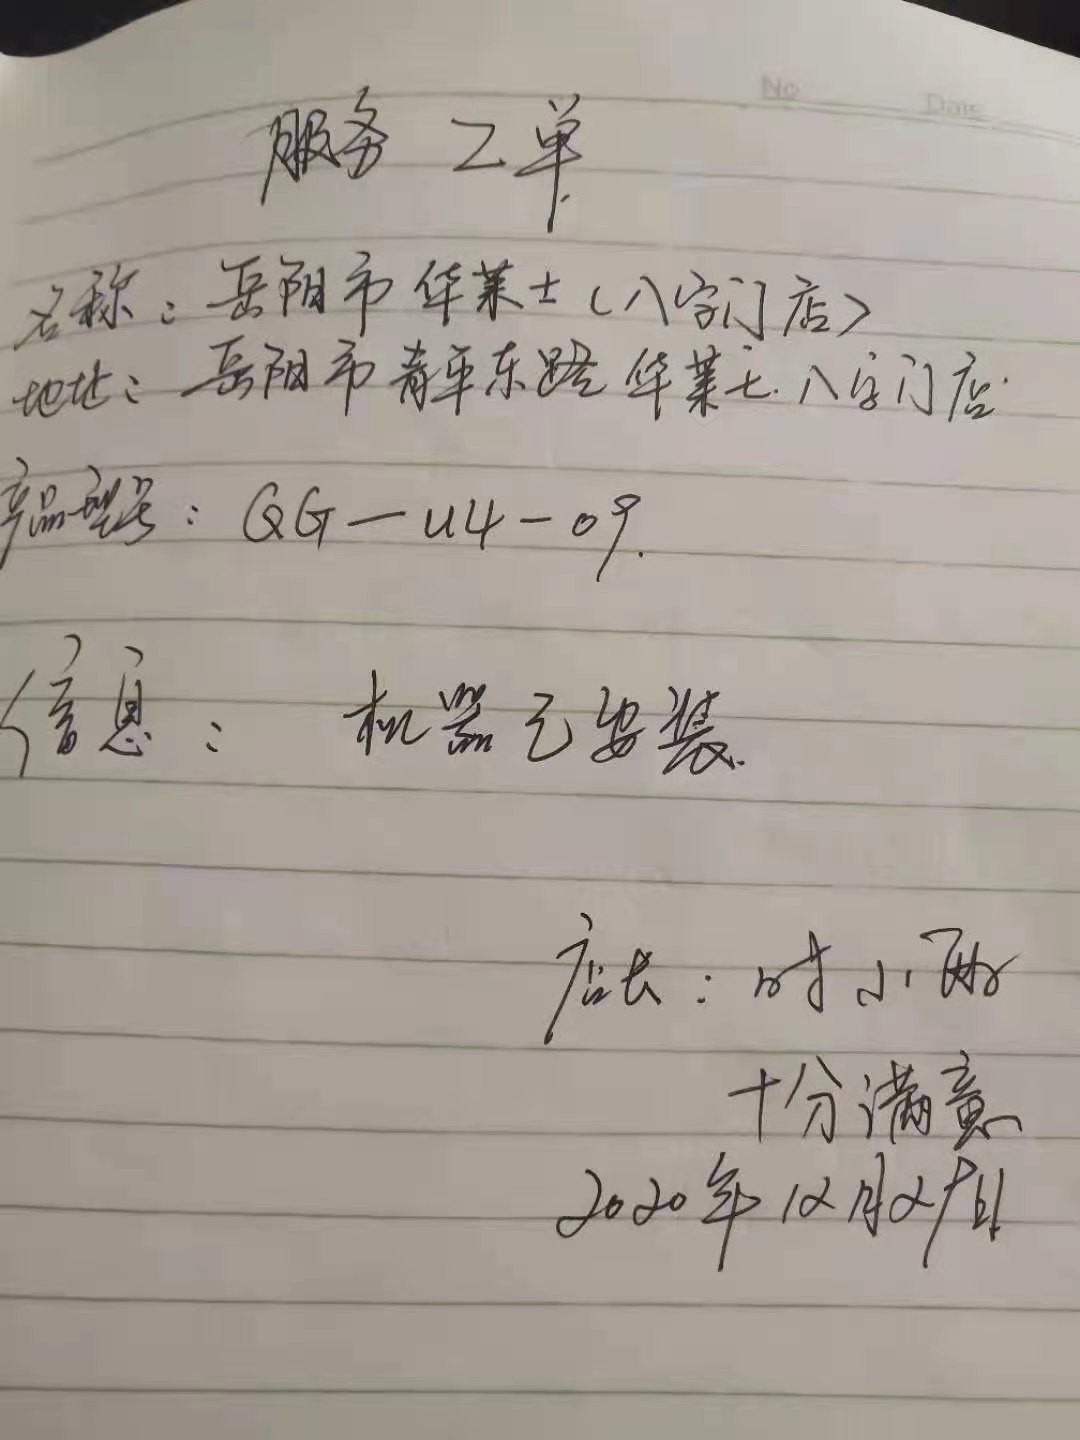 No Date
服务工单
名称：岳阳市华莱士（八字门店）
地址：岳阳市青年东路华莱士八字门店
产品型号：QG-U4-09.
信息：机器已安装.
店长：时小
十分满意
2020年12月27日